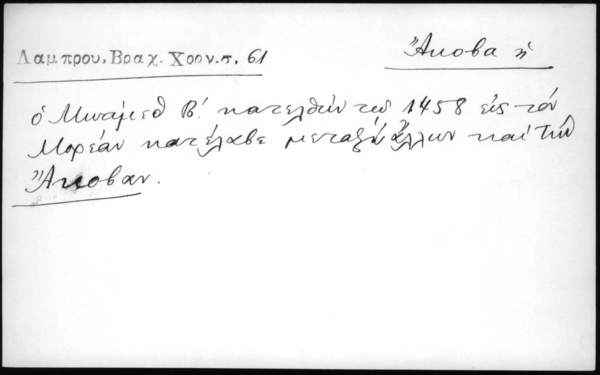 Λαμπρου, Βραχ. Χρον. σ. 61
Ἄκοβα ἡ
ὁ Μωάμεθ Β΄. κατελθὼν τῷ 1458 εἰς τὸν
Μορέαν κατέλαβε μεταξὺ ἄλλων καὶ τὴν
Ἄκοβαν.